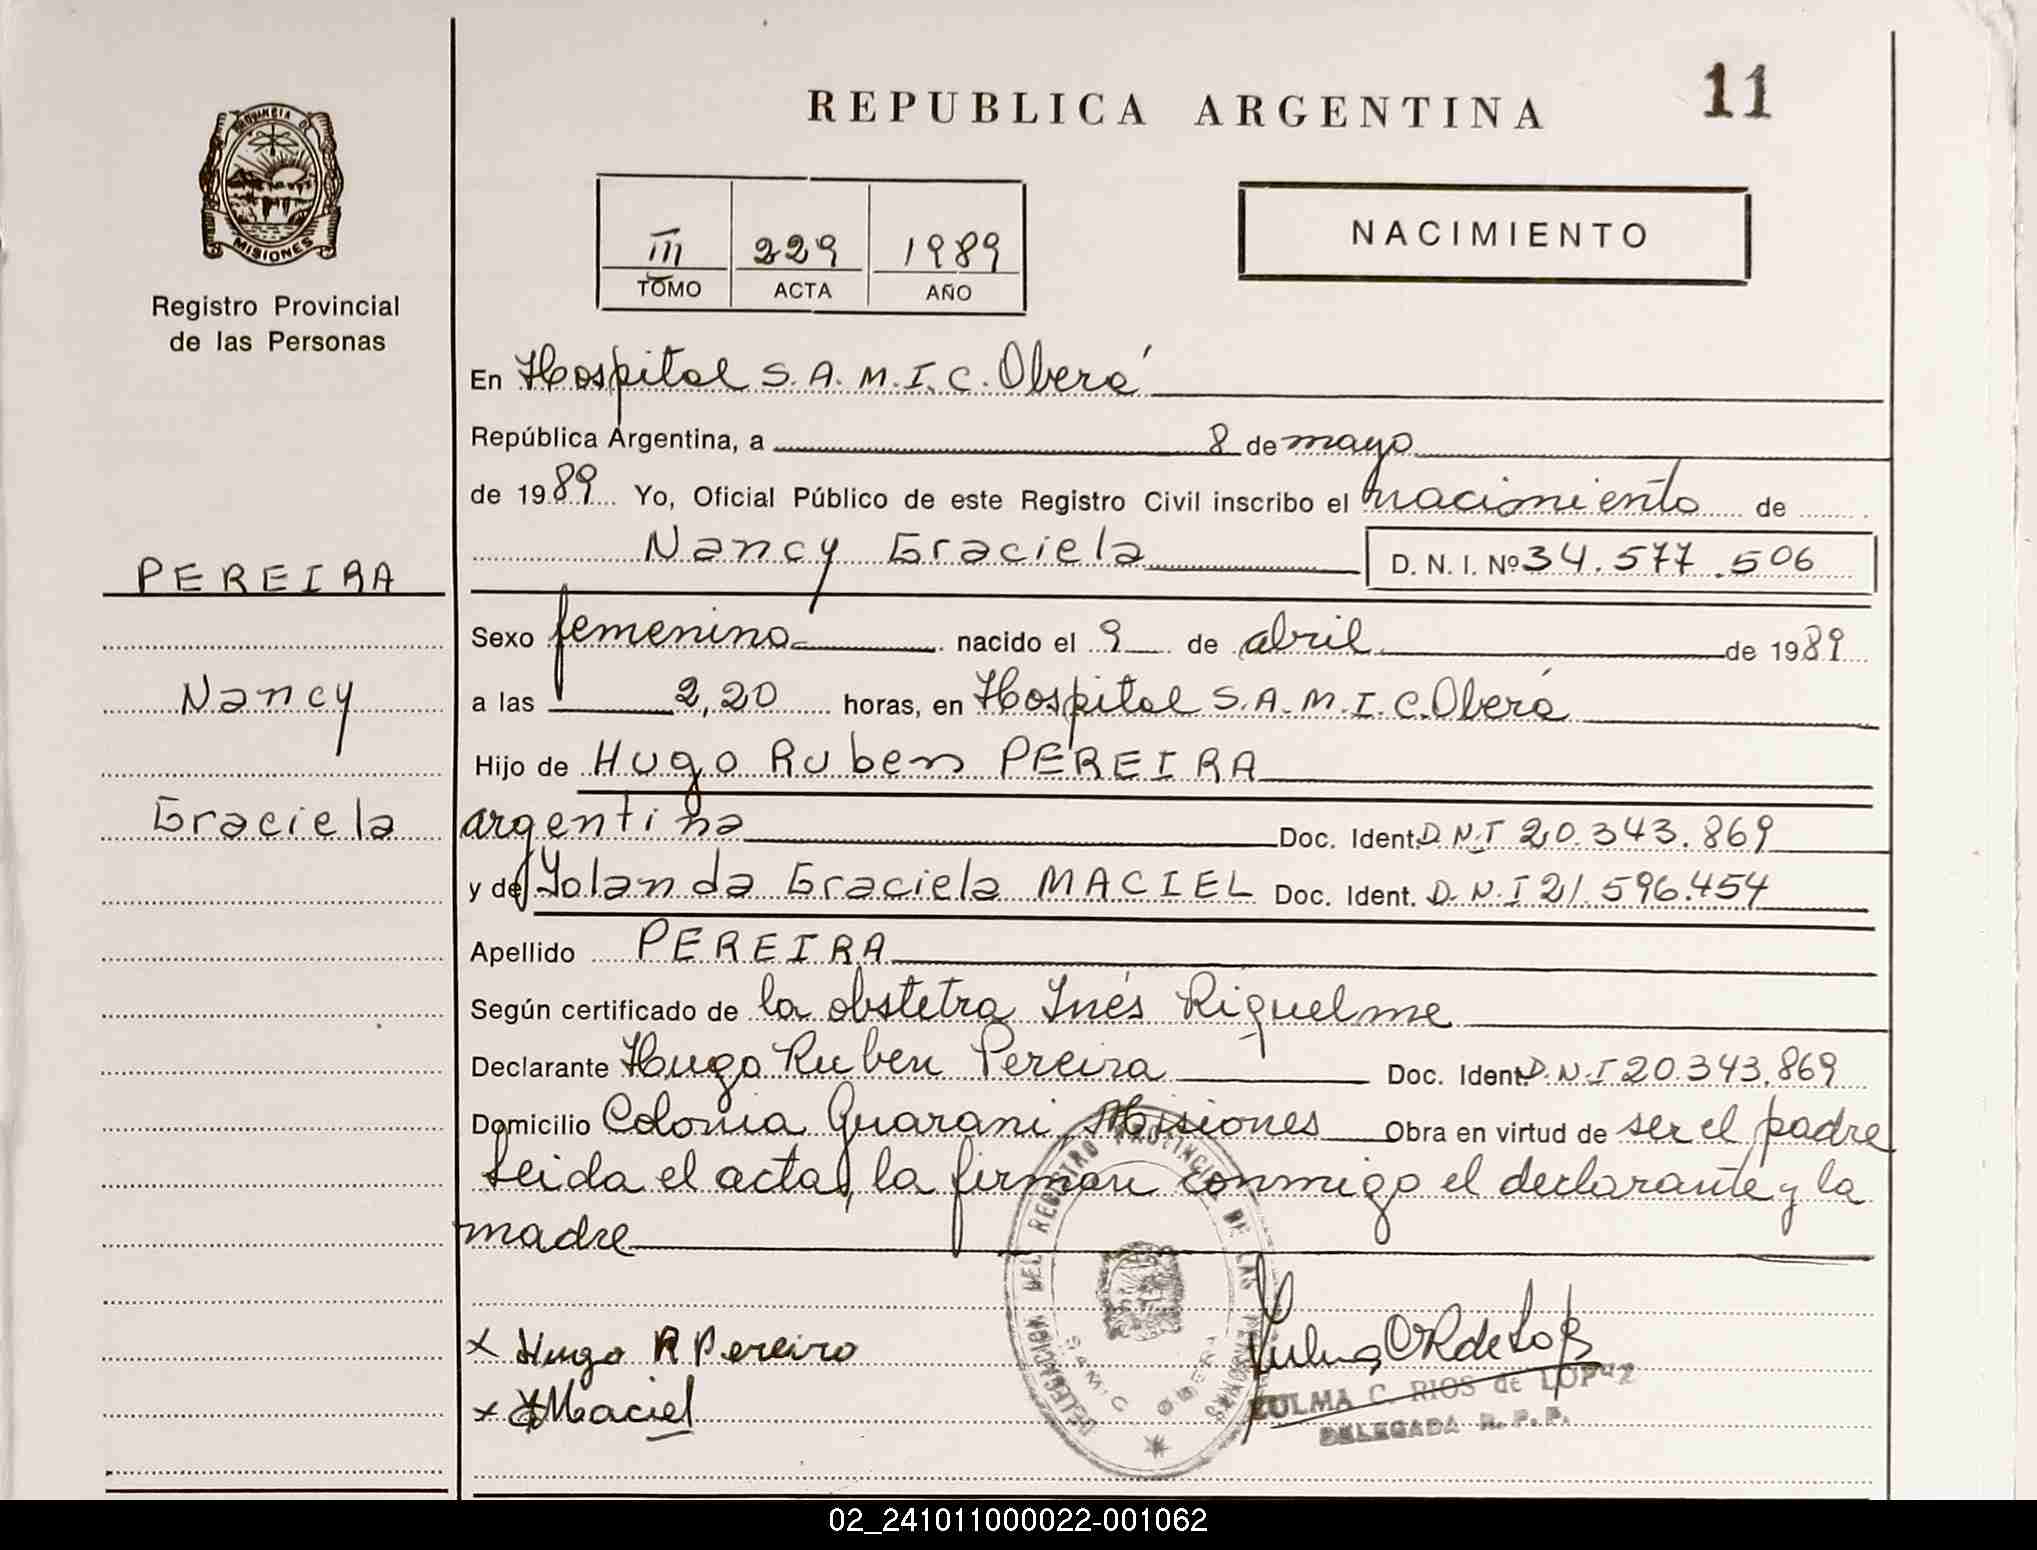 REPUBLICA ARGENTINA
11
PROVINCIA DE
MISIONES
Registro Provincial
de las Personas
III 229 1989
TOMO ACTA AÑO
NACIMIENTO
En Hospital S.A.M.I.C. Oberá
República Argentina, a 8 de mayo
de 1989 Yo, Oficial Público de este Registro Civil inscribo el nacimiento de
Nancy Graciela D. N. I. Nº 34.577.506
PEREIRA
Nancy
Graciela
Sexo femenino nacido el 9 de abril de 1989
a las 2,20 horas, en Hospital S.A.M.I.C. Oberá
Hijo de Hugo Ruben PEREIRA
argentina Doc. Ident. D.N.I 20.343.869
y de Yolanda Graciela MACIEL Doc. Ident. D.N.I 21.596.454
Apellido PEREIRA
Según certificado de la obstetra Inés Riquelme
Declarante Hugo Ruben Pereira Doc. Ident. D.N.I 20.343.869
Domicilio Colonia Guarani Misiones Obra en virtud de ser el padre
Leida el acta, la firman conmigo el declarante y la
madre
DELEGACION DEL REGISTRO PROVINCIAL DE LAS PERSONAS
SAMIC OBERA
x Hugo R Pereira
x Y Maciel
ZULMA C. RIOS de LOPEZ
DELEGADA R. P. P.
02_241011000022-001062